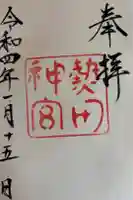 奉拝
熱田神宮
令和四年一月十五日